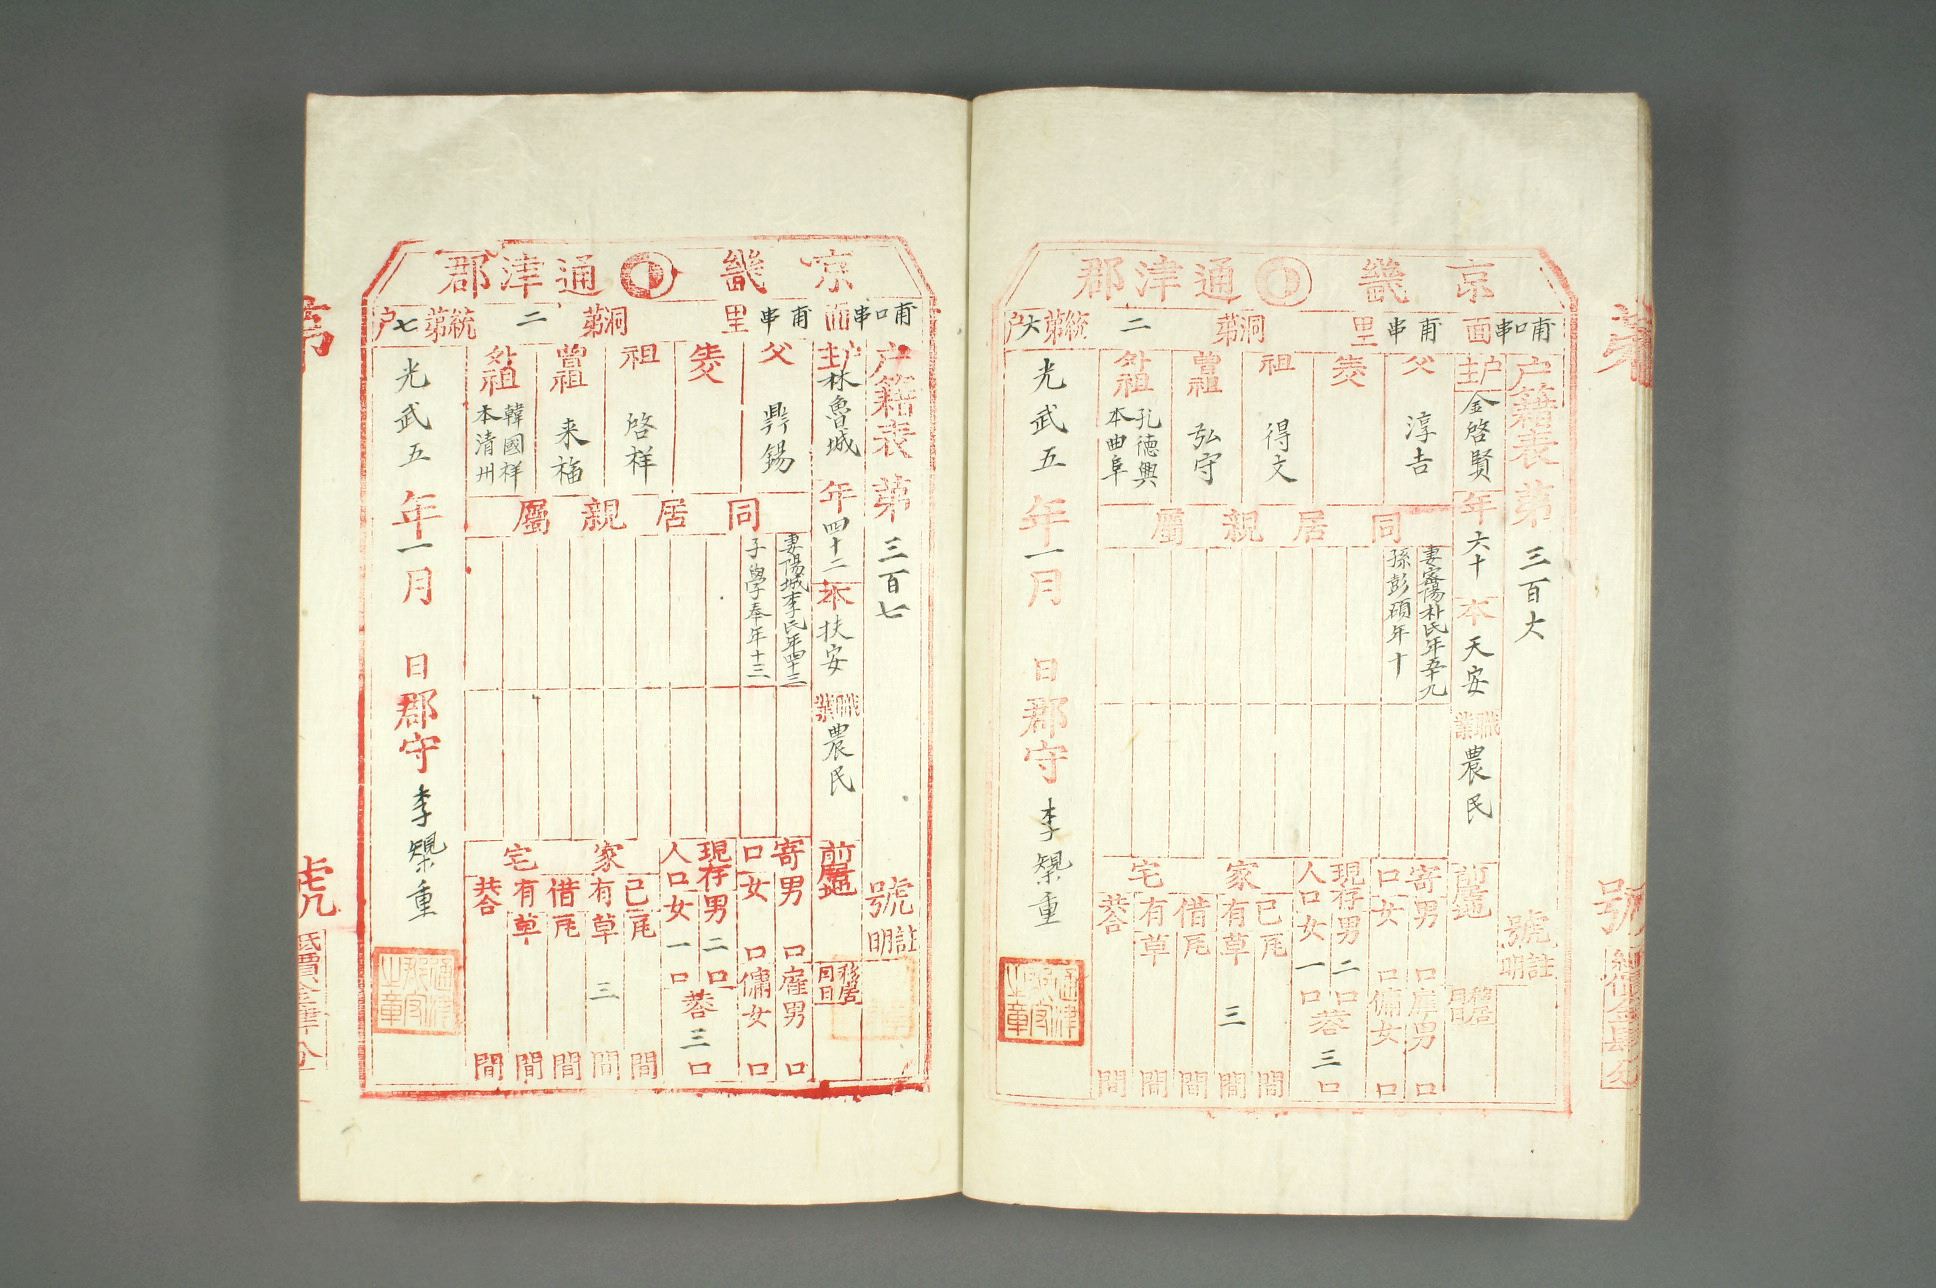 京畿 通津郡
甫口串面甫串里 洞第二統第六戶
戶籍表 第三百六 號
註明
戶主 金啓賢 年六十 本天安 職業農民 前居地
移居月日
父 淳吉
祖 得文
曾祖 弘守
外祖 孔德興 本曲阜
同居親屬
妻密陽朴氏年五十九
孫彭碩年十
寄口 男 口 女 口
雇男 口 傭女 口
現存人口 男二口 女一口 共三口
家宅
已有 瓦 間 草三間
借有 瓦 間 草 間
共合 間
光武五年一月 日 郡守 李
重
通津郡守之章
京畿 通津郡
甫口串面甫串里 洞第二統第七戶
戶籍表 第三百七 號
註明
戶主 林魯城 年四十二 本扶安 職業農民 前居地
移居月日
父
錫
祖 啓祥
曾祖 来福
外祖 韓國祥 本清州
同居親屬
妻陽城李氏年四十三
子學奉年十三
寄口 男 口 女 口
雇男 口 傭女 口
現存人口 男二口 女一口 共三口
家宅
已有 瓦 間 草三間
借有 瓦 間 草 間
共合 間
光武五年一月 日 郡守 李
重
通津郡守之章